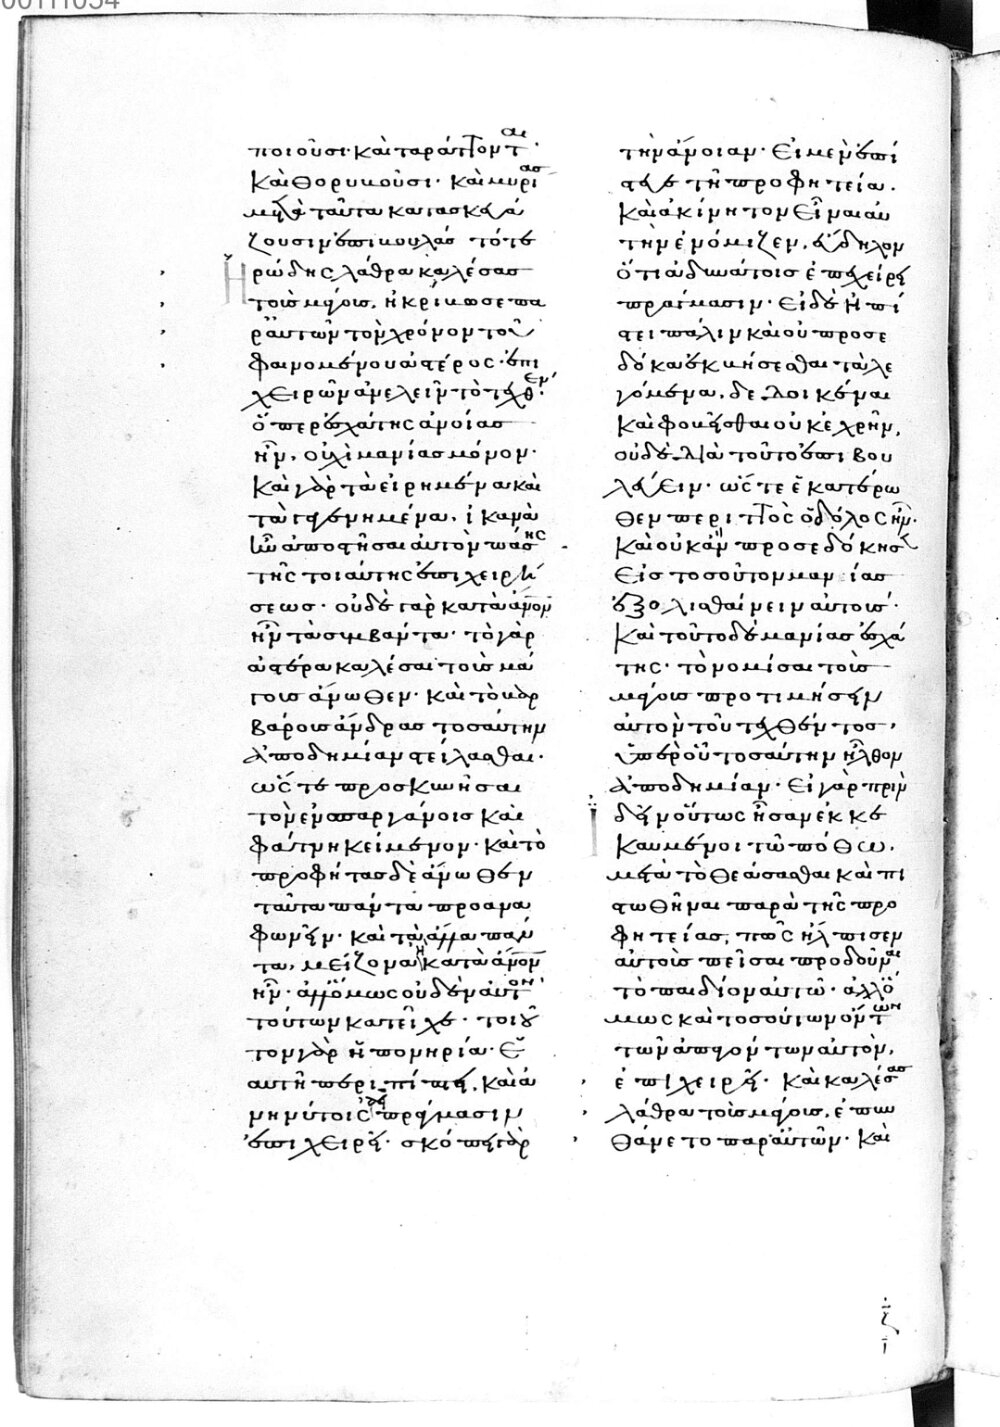 00111054
ποιοῦσι· καὶ ταράττονται·
καὶ θορυβοῦσι· καὶ μυρίας
μετὰ ταῦτα κατασκευά
ζουσιν ἐπιβουλάς τότε
Ἡρώδης λάθρα καλέσας
τοὺς μάγους, ἠκρίβωσε πα
ρ᾽ αὐτῶν τὸν χρόνον τοῦ
φαινομένου ἀστέρος· ἐπι
χειρῶν ἀνελεῖν τὸ τεχθέν·
ὅπερ ἐσχάτης ἀνοίας
ἦν, οὐχὶ μανίας μόνον·
καὶ γὰρ τὰ εἰρημένα καὶ
τὰ γεγενημένα, ἱκανὰ
ἦν ἀποστῆσαι αὐτὸν πάσης
τῆς τοιαύτης ἐπιχειρή
σεως· οὐδὲ γὰρ κατὰ ἄνον
ἦν τὰ συμβάντα· τὸ γὰρ
ἀστέρα καλέσαι τοὺς μά
γους ἄνωθεν· καὶ τὸ βαρ
βάρους ἄνδρας τοσαύτην
ἀποδημίαν στείλασθαι·
ὥστε προσκυνῆσαι
τὸν ἐν σπαργάνοις καὶ
φάτνῃ κείμενον· καὶ τὸ
προφήτας δὲ ἄνωθεν
ταῦτα πάντα προανα
φωνεῖν· καὶ τὰ ἄλλα πάν
τα, μείζονα ἢ κατὰ ἄνον
ἦν· ἀλλ᾽ ὅμως οὐδὲν αὐτὸν
τούτων κατεῖχε· τοιοῦ
τον γὰρ ἡ πονηρία· ἑ
αυτῇ περιπίπτει, καὶ ἀ
νηνύτοις ἀεὶ πράγμασιν
ἐπιχειρεῖ· σκόπει γὰρ
τὴν ἄνοιαν· εἰ μὲν ἐπί
στευε τῇ προφητείᾳ·
καὶ ἀκίνητον εἶναι αὐ
τὴν ἐνόμιζεν, εὔδηλον
ὅτι ἀδυνάτοις ἐπεχείρει
πράγμασιν· εἰ δὲ ἠπί
στει πάλιν καὶ οὐ προσε
δόκα ἐκβήσεσθαι τὰ λε
γόμενα, δεδοικέναι
καὶ φοβεῖσθαι οὐκ ἐχρῆν,
οὐδὲ διὰ τοῦτο ἐπιβου
λεύειν· ὥστε ἑκατέρω
θεν περιττὸς ὁ δόλος ἦν·
εἰς τοσοῦτον μανίας
ἐξολισθαίνειν αὐτούς·
καὶ τοῦτο δὲ μανίας ἐσχά
της· τὸ νομίσαι τοὺς
μάγους προτιμήσειν
αὐτὸν τοῦ τεχθέντος,
ὑπὲρ οὗ τοσαύτην ἦλθον
ἀποδημίαν· εἰ γὰρ πρὶν
ἰδεῖν οὕτως ἦσαν ἐκκε
καυμένοι τῷ πόθῳ,
μετὰ τὸ θεάσασθαι καὶ πι
στωθῆναι παρὰ τῆς προ
φητείας, πῶς ἤλπισεν
αὐτοὺς πεῖσαι προδοῦναι
τὸ παιδίον αὐτῷ· ἀλλ᾽ ὅ
μως καὶ τοσούτων ὄντων
τῶν ἀπαγόντων αὐτὸν,
ἐπιχειρεῖ· καὶ καλέσας
λάθρα τοὺς μάγους, ἐπυν
θάνετο παρ᾽ αὐτῶν· καὶ